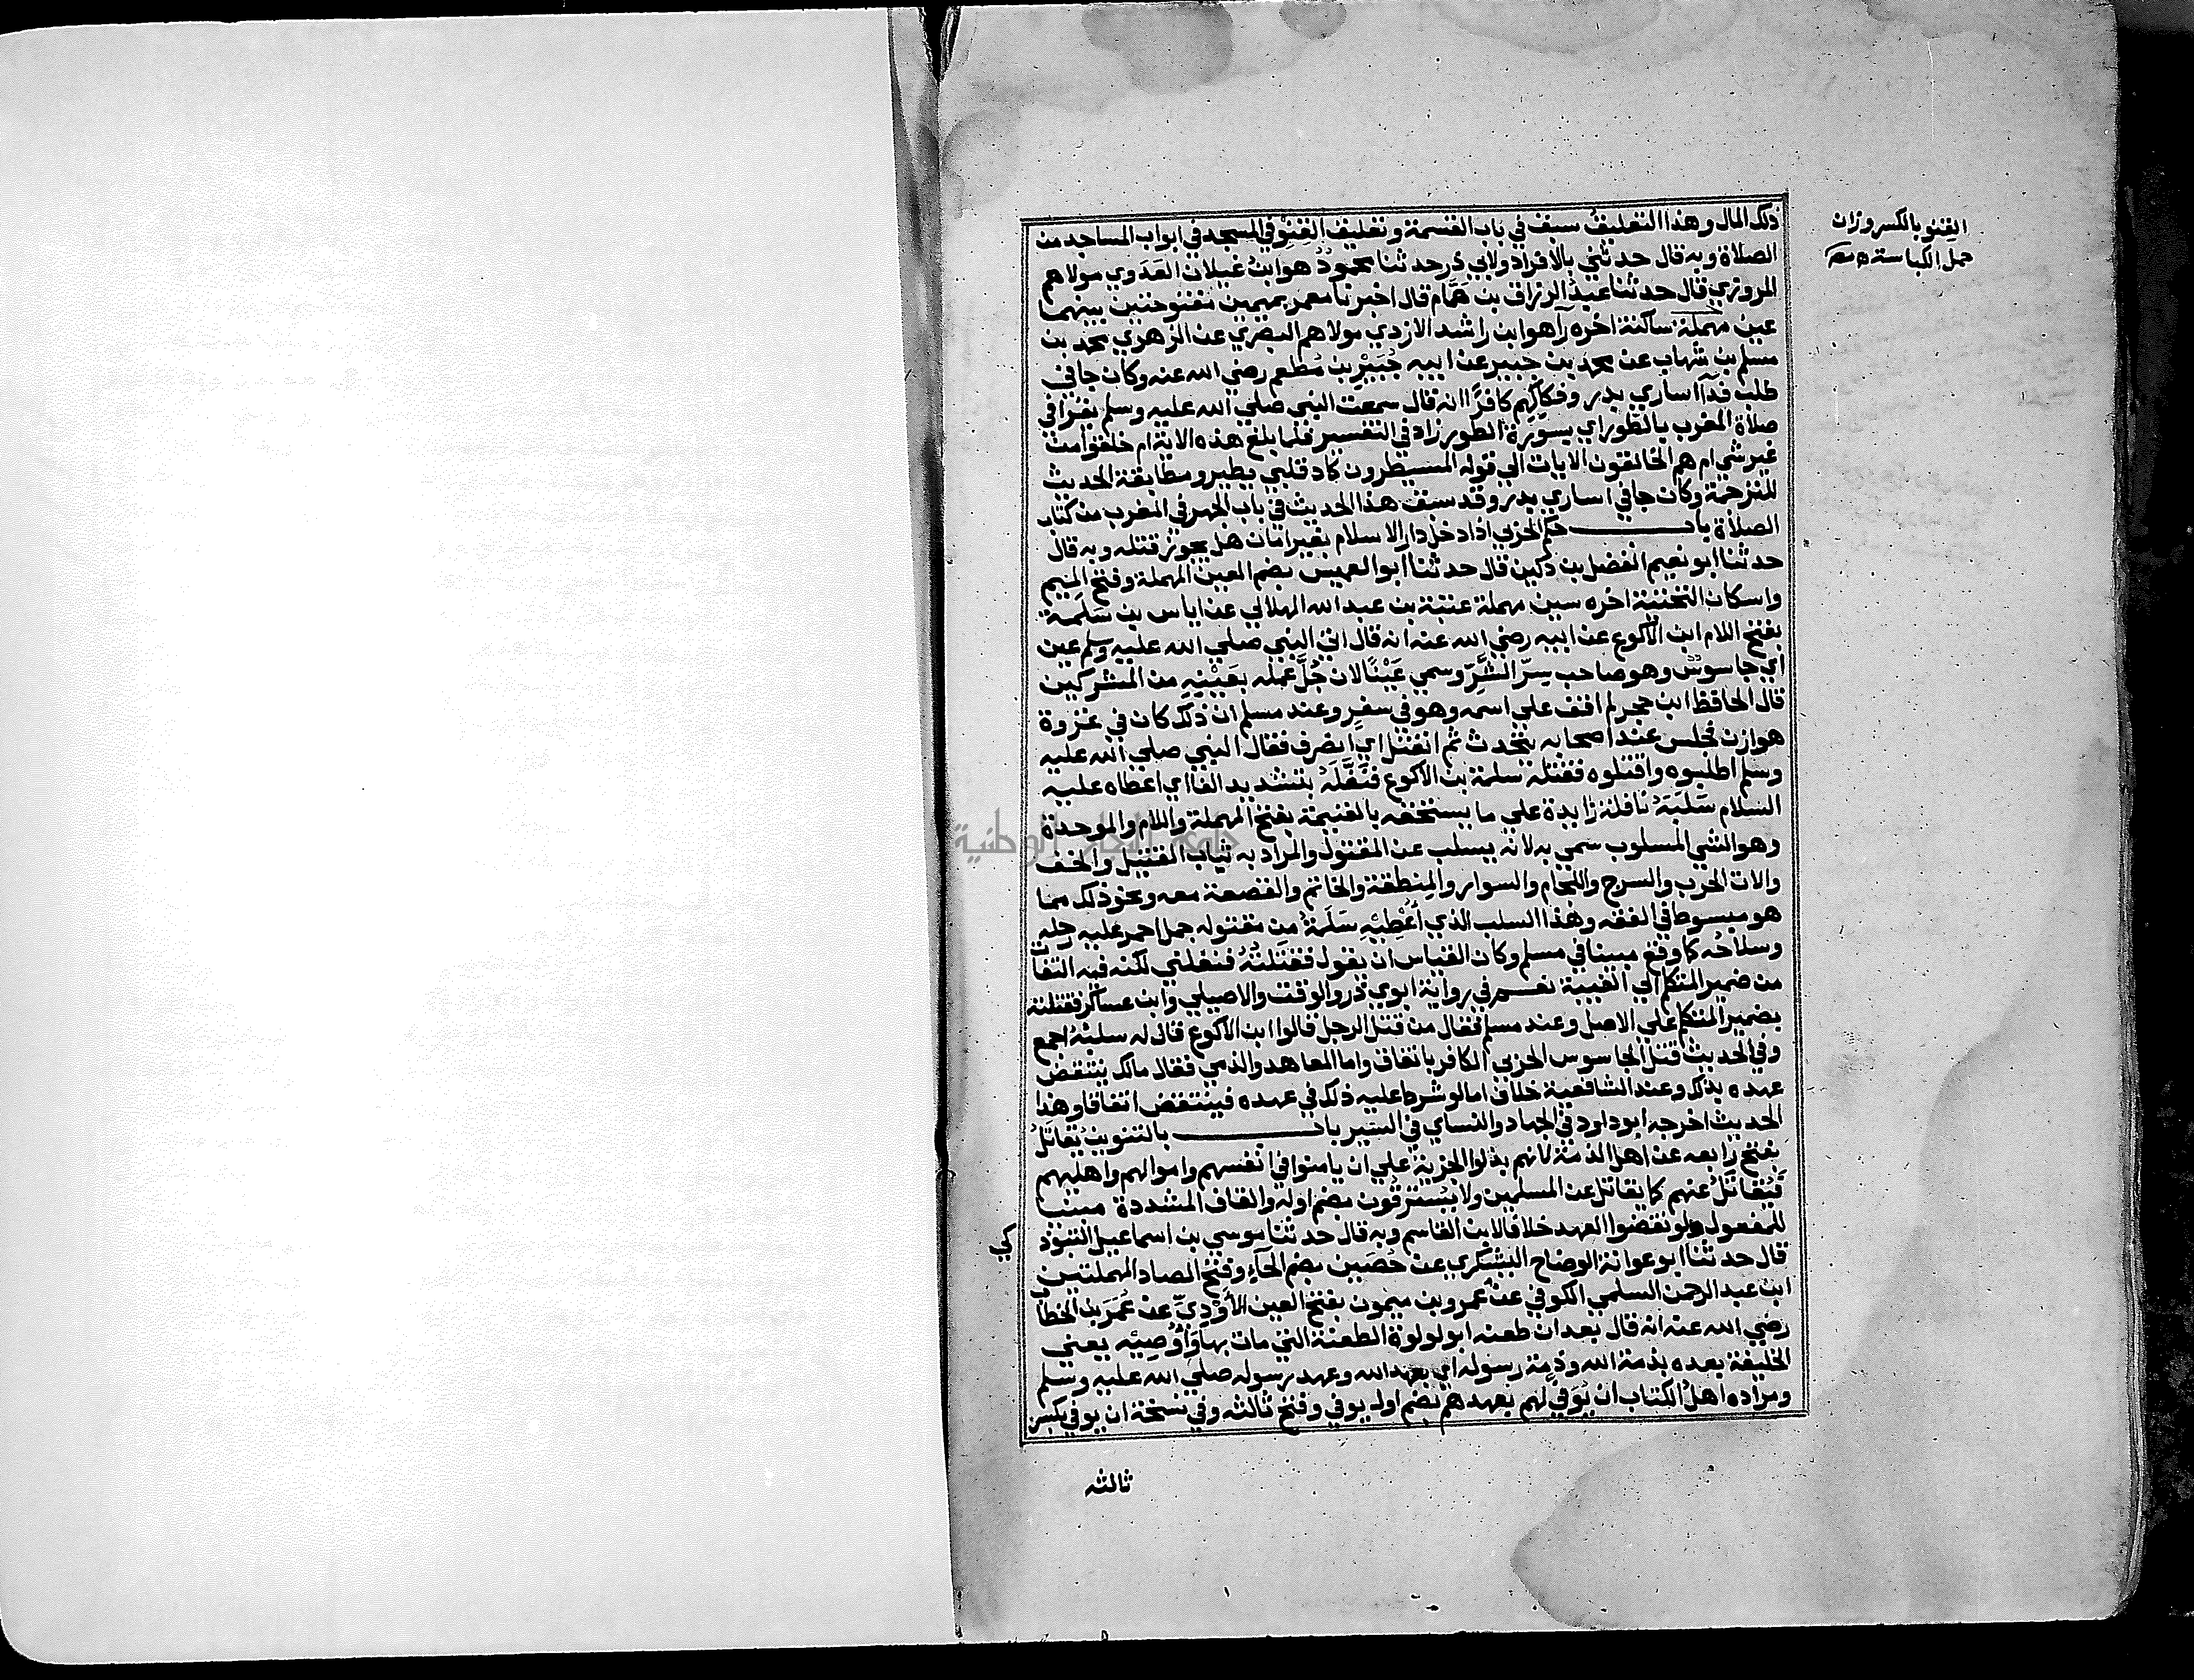 ذلك المال وهذا التعليق سبق في باب القسمة وتعليق القنو في المسجد في ابواب المساجد من
الصلاة وبه قال حدثني بالافراد ولابي ذر حدثنا محمود هو ابن غيلان العدوي مولاهم
المروزي قال حدثنا عبد الرزاق بن همام قال اخبرنا معمر بميمين مفتوحتين بينهما
عين مهملة ساكنة اخره رآ هو ابن راشد الازدي مولاهم البصري عن الزهري محمد بن
مسلم بن شهاب عن محمد بن جبير عن ابيه جُبَيْر بن مُطعم رضي الله عنه وكان جا في
طلب فدآ اساري بدر وفكاكهم كافرًا انه قال سمعت النبي صلي الله عليه وسلم يقرا في
صلاة المغرب بالطور اي بسورة الطور زاد في التفسير فلما بلغ هذه الاية ام خلقوا من
غير شي ام هم الخالقون الايات الي قوله المسيطرون كاد قلبي يطير ومطابقة الحديث
للترجمة وكان جا في اساري بدر وقد سبق هذا الحديث في باب الجهر في المغرب من كتاب
الصلاة باب حكم الحربي اذا دخل دار الاسلام بغير امان هل يجوز قتله وبه قال
حدثنا ابو نعيم الفضل بن دكين قال حدثنا ابو العميس بضم العين المهملة وفتح الميم
واسكان التحتية اخره سين مهملة عتبة بن عبد الله الهلالي عن اياس بن سَلَمة
بفتح اللام ابن الاكوع عن ابيه رضي الله عنه انه قال اتي النبي صلي الله عليه وسلم عين
اي جاسوس وهو صاحب سِرّ الشَّرِّ وسمي عَيْنًا لان جُلَّ عمله بعَيْنِهِ من المشركين
قال الحافظ ابن حجر لم اقف علي اسمه وهو في سفر وعند مسلم ان ذلك كان في غزوة
هوازن فجلس عند اصحابه يتحدث ثم انفتل اي انصرف فقال النبي صلي الله عليه
وسلم اطلبوه واقتلوه فقتله سلمة بن الاكوع فنَفَّلَهُ بتشديد الفا اي اعطاه عليه
السلام سَلَبَهُ نافلة زايدة علي ما يستحقه بالغنيمة بفتح المهملة واللام والموحدة
وهو الشي المسلوب سمي به لانه يسلب عن المقتول والمراد به ثياب القتيل والخف
والات الحرب والسرج واللجام والسوار والمنطقة والخاتم والقصعة معه ونحو ذلك مما
هو مبسوط في الفقه وهذا السلب الذي أُعْطِيَهِ سَلَمةُ من مقتوله جمل احمر عليه رحله
وسلاحُه كما وقع مبينا في مسلم وكان القياس ان يقول فقتلتُهُ فنفلني لكنه فيه التفات
من ضمير المتكلم الي الغيبة نعم في رواية ابوي ذر والوقت والاصيلي وابن عساكر فقتلته
بضمير المتكلم علي الاصل وعند مسلم فقال من قتل الرجل قالوا ابن الاكوع قال له سلبُهُ اجمع
وفي الحديث قتل الجاسوس الحربي الكافر باتفاق واما المعاهد والذمي فقال مالك ينتقض
عهده بذلك وعند الشافعية خلاف اما لو شرط عليه ذلك في عهده فينتقض اتفاقا وهذا
الحديث اخرجه ابو داود في الجهاد والنساي في السير باب بالتنوين يقاتل
بفتح رابعه عن اهل الذمة لانهم بذلوا الجزية علي ان يامنوا في انفسهم واموالهم واهليهم
فيُقاتَلُ عنهم كما يقاتل عن المسلمين ولا يُسترقّون بضم اوله والقاف المشددة مبنيا
للمفعول ولو نقضوا العهد خلافا لابن القاسم وبه قال حدثنا موسي بن اسماعيل التبوذكي
قال حدثنا ابو عوانة الوضاح اليشكري عن حُصَين بضم الحآء وفتح الصاد المهملتين
ابن عبد الرحمن السلمي الكوفي عن عمرو بن ميمون بفتح العين الأَوْدِيّ عن عُمَر بن الخطاب
رضي الله عنه انه قال بعد ان طعنه ابو لولوة الطعنة التي مات بها وَأُوصِيْه يعني
الخليفة بعده بذمة الله وذمة رسوله اي بعهد الله وعهد رسوله صلي الله عليه وسلم
ومراده اهل الكتاب ان يُوفَي لهم بعهدهم بضم اوله يوفي وفتح ثالثه وفي نسخة ان يوفي بكسر
ثالثه
القِنو بالكسر وزان
حمل الكباسة
جامعة النجاح الوطنية